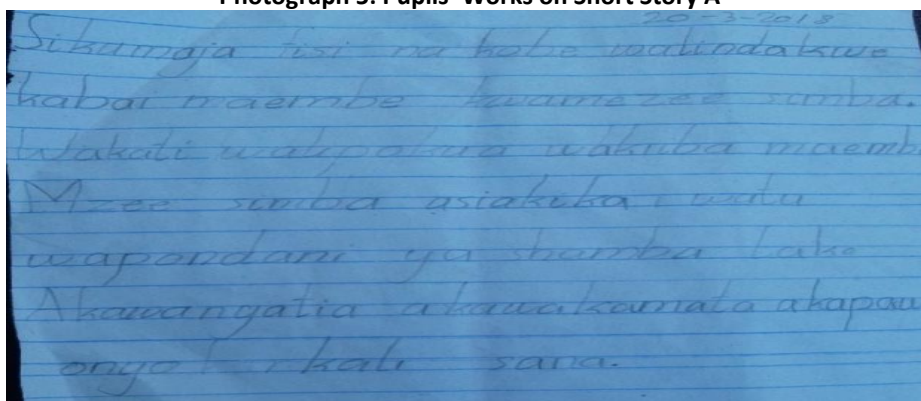 Photograph 5: Pupils' Works on Short Story A
20-3-2018
Sikumoja fisi na kobe walindakwe
kabai maembe kwamezee simba.
Wakati walipokua wakuiba maemb
Mzee simba asiakika watu
wapondani ya shamba lake
Akawangalia akawakamata akapaw
onyo kali sana.